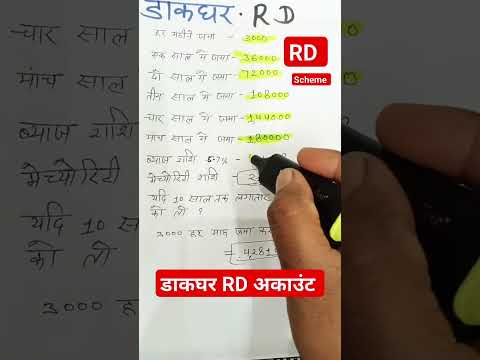 डाकघर. RD
हर महीने जमा - 3000
एक साल में जमा - 36000
दो साल में जमा - 72000
तीन साल में जमा - 108000
चार साल में जमा - 144000
पांच साल में जमा - 180000
ब्याज राशि 5.7% -
मेच्योरिटी राशि -
यदि 10 साल तक लगातार
को तो ?
3000 हर माह जमा
= 4281
RD
Scheme
चार साल
पांच साल
ब्याज राशि
मेच्योरिटी
यदि 10 स
को तो
3000 ह
डाकघर RD अकाउंट